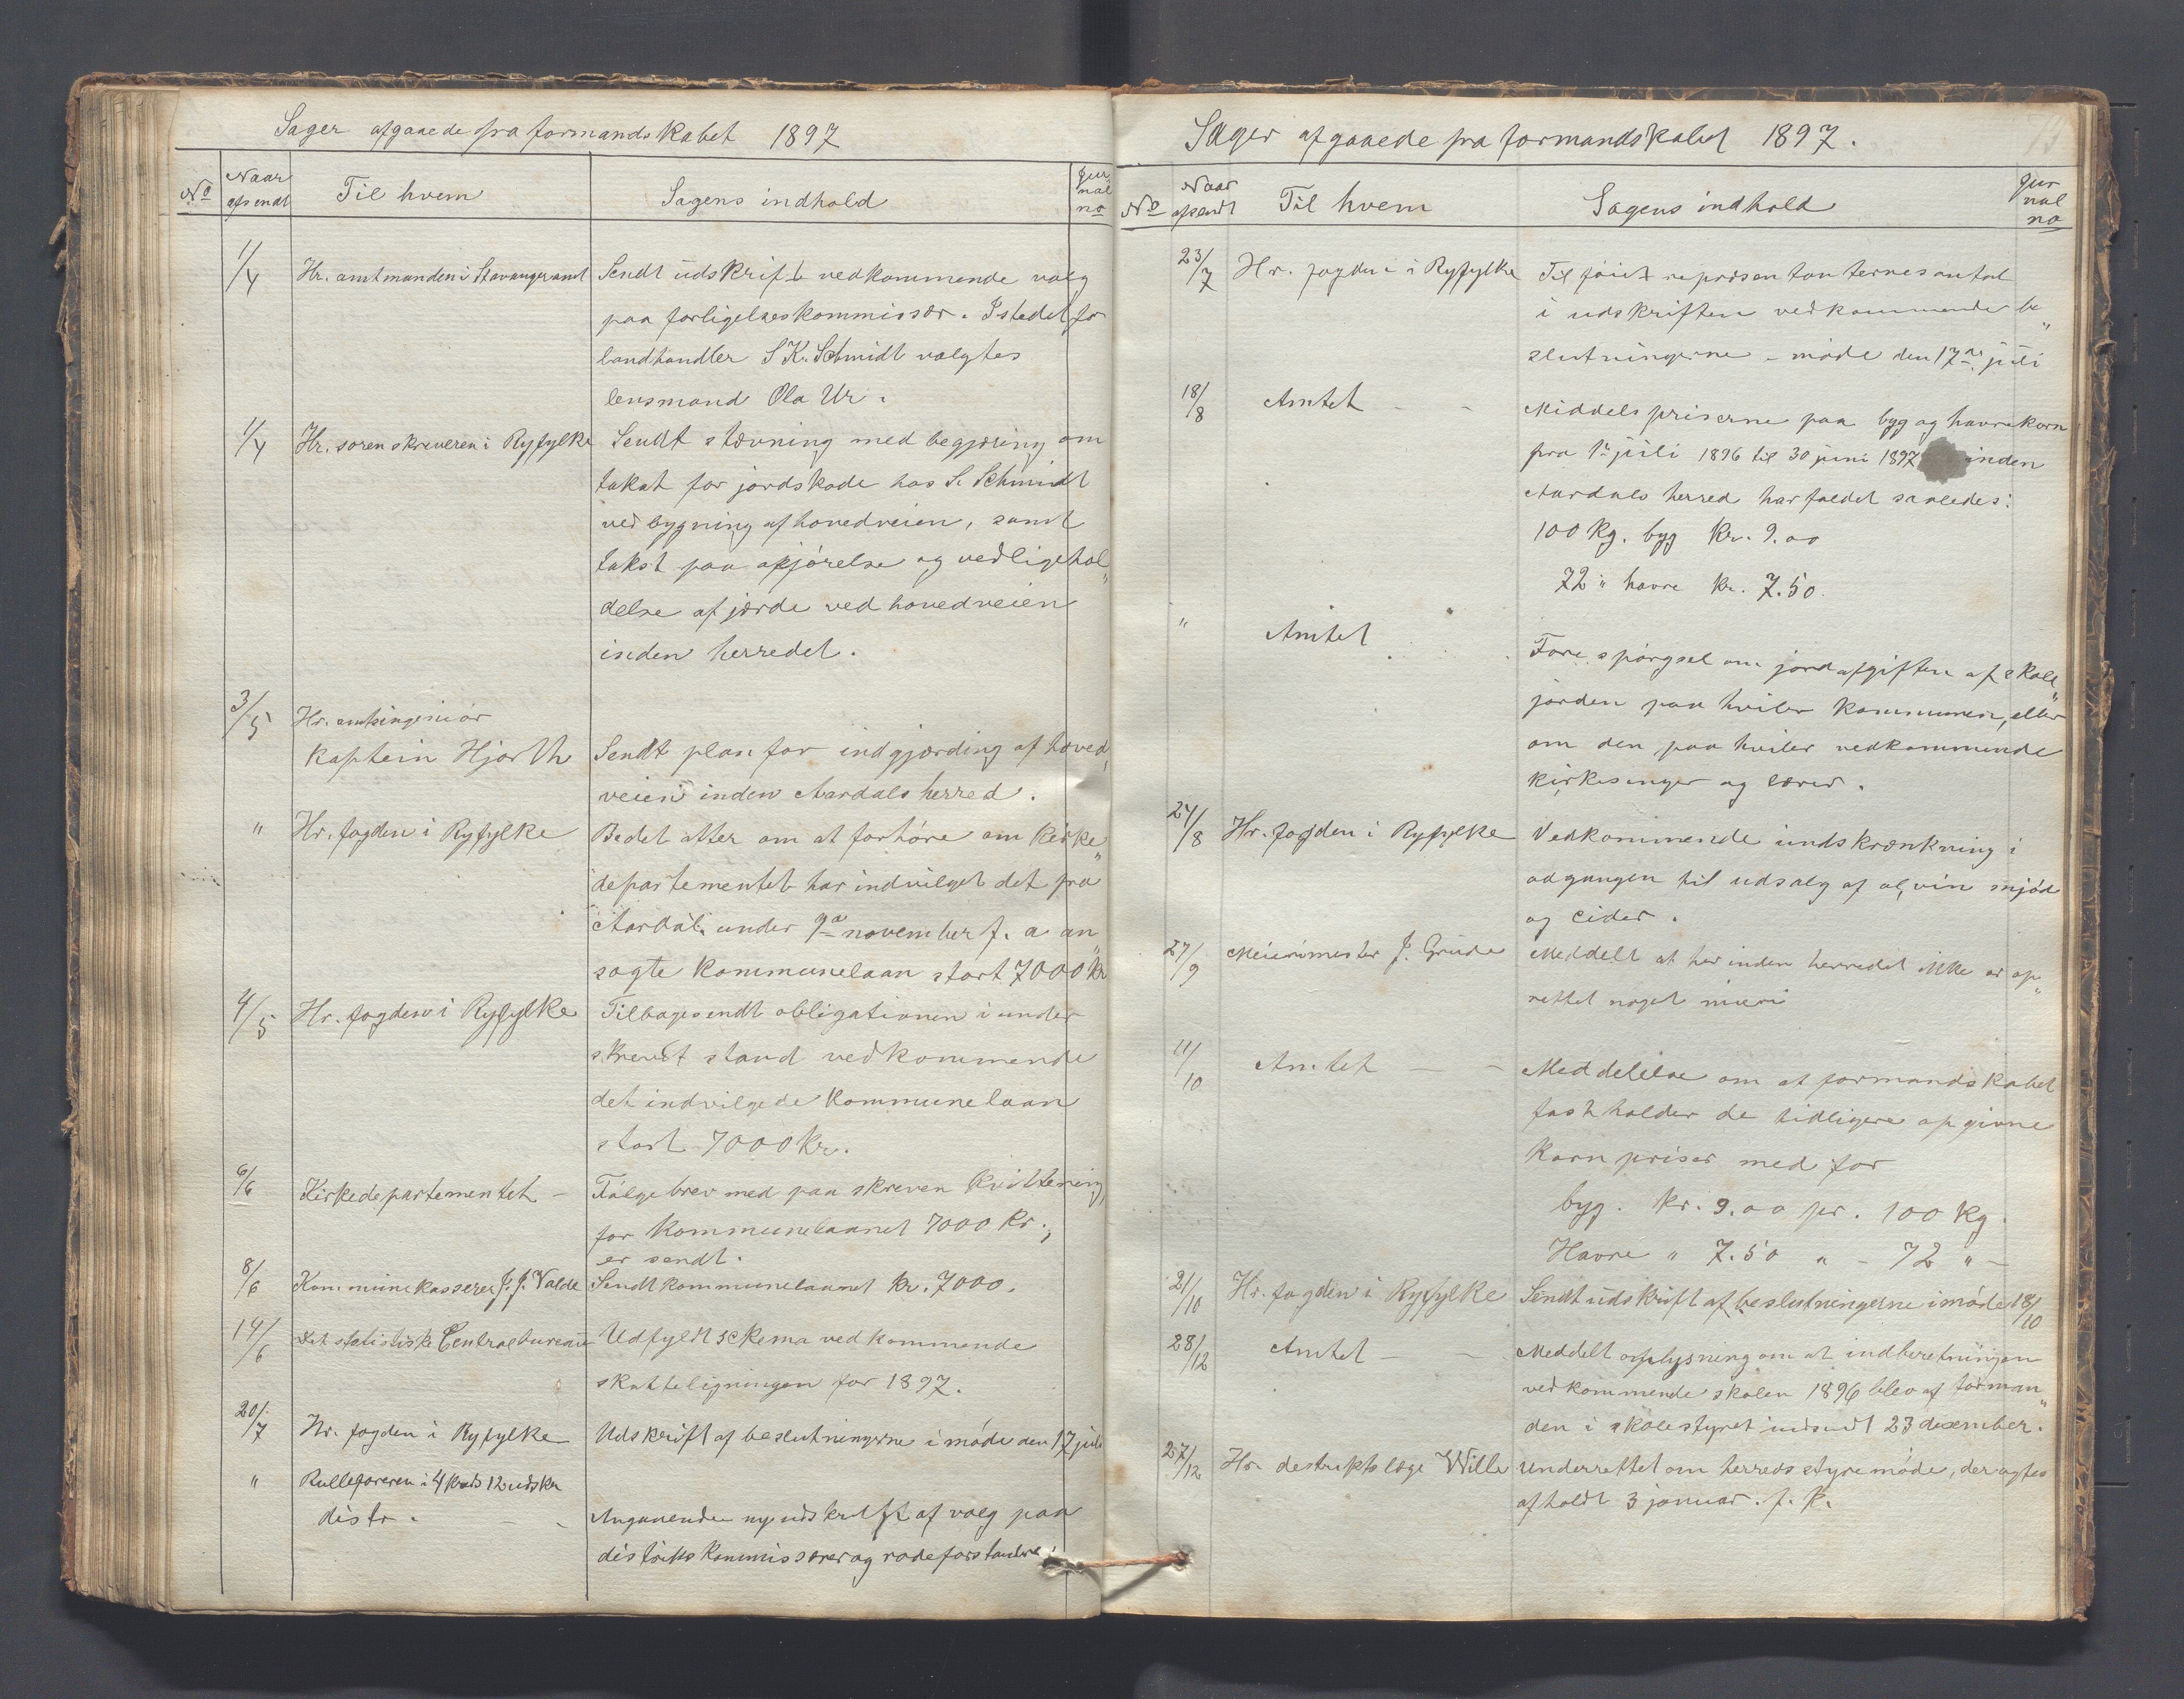 Sager afgaaede fra formandskabet 1897
No
Naar afsendt
Til hvem
Sagens indhold
Jurnal no
1/4 Hr. amtmanden i Stavanger amt Sendt udskrift vedkommende valg
paa forligelseskommissær. Istedet for
landhandler S K. Schmidt valgtes
lensmand Ola Ur.
1/4 Hr. sorenskriveren i Ryfylke Sendt stævning med begjæring om
takst for jordskade hos S. Schmidt
ved bygning af hovedveien, samt
takst paa opjørelse og vedligehol„
delse af jærde ved hovedveien
inden herredet.
3/5 Hr. amtsingeniør
Kaptein Hjorth Sendt plan for indgjærding af hoved„
veien inden Aardals herred.
" Hr. fogden i Ryfylke Bedet atter om at forhøre om Kirke„
departementet har indvilget det fra
Aardal under 9de november f. a an„
søgte Kommunelaan stort 7000 kr
4/5 Hr. fogden i Ryfylke Tilbagesendt obligationen i under
skrevet stand vedkommende
det indvilgede Kommunelaan
stort 7000 Kr.
6/6 Kirkedepartementet – Følgebrev med paaskreven Kvittering,
for Kommunelaanet 7000 Kr.,
er sendt.
8/6 Kommunekasserer J. J. Valde Sendt kommunelaanet kr. 7000.
14/6 Det statistiske Centralbureau Udfyldt skema vedkommende
skatteligningen for 1897.
20/7 Hr. fogden i Ryfylke Udskrift af beslutningerne i møde den 17 juli
" Rulleføreren i 4 kreds 12 udskr
distr. – - Angaaende ny udskrift af valg paa
distrikts kommissærer og rodeforstandere.
Sager afgaaede fra formandskabet 1897.
No
Naar afsendt
Til hvem
Sagens indhold
Jurnal no
23/7 Hr. fogden i Ryfylke Tilføiet repræsentanternes antal
i udskriften vedkommende be„
slutningerne – møde den 17de juli
18/8 Amtet - - Middelspriserne paa byg og havrekorn
fra 1ste juli 1896 til 30 juni 1897 inden
Aardals herred har faldet saaledes:
100 Kg. byg Kr. 9.00
72 " havre Kr. 7.50.
" Amtet Forespørgsel om jordafgiften af skole„
jorden paa hviler Kommunen, eller
om den paa hviler vedkommende
kirkesanger og lærer.
24/8 Hr. fogden i Ryfylke Vedkommende indskrænkning i
adgangen til udsalg af øl, vin mjød
og cider.
27/9 Meierimester J. Grude Meddelt at her inden herredet ikke er op„
rettet noget mieri
11/10 Amtet – - Meddelelse om at formandskabet
fastholder de tidligere opgivne
Kornpriser med for
byg. Kr. 9.00 pr. 100 Kg.
Havre " 7.50 " – 72 " –
21/10 Hr. fogden i Ryfylke Sendt udskrift af beslutningerne i møde 18/10
28/12 Amtet – - Meddelt oplysning om at indberetningen
vedkommende skolen 1896 blev af forman„
den i skolestyret indsendt 23 desember.
27/12 Hr. destriktslæge Wille Underrettet om herredsstyremøde, der agtes
afholdt 3 januar. f. k.